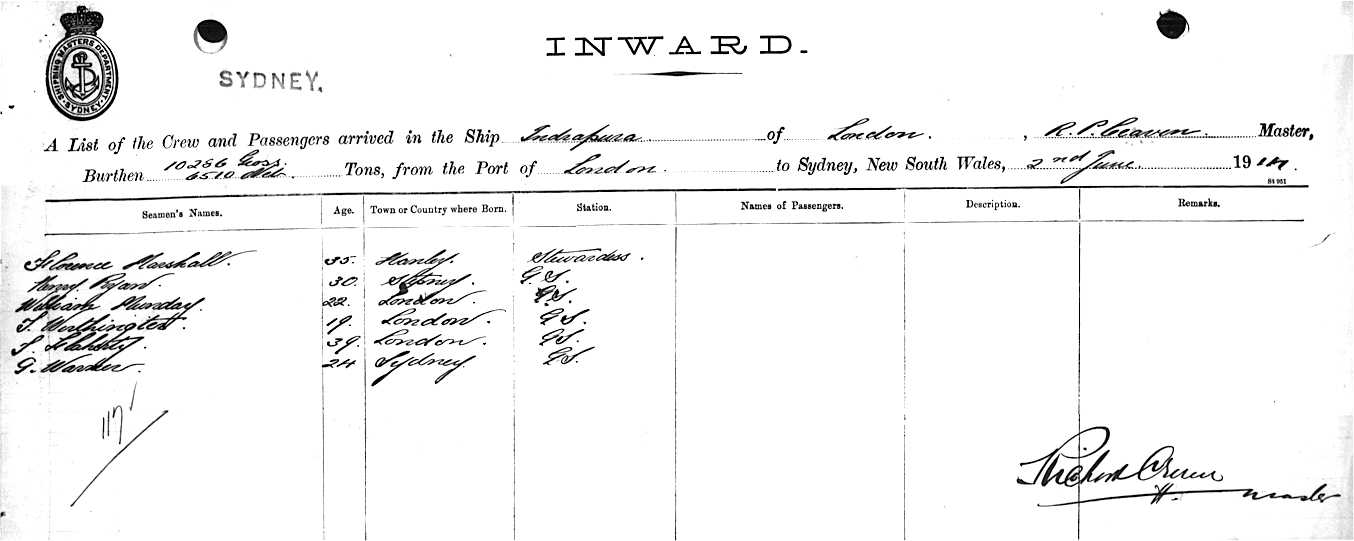 SHIPPING MASTERS DEPARTMENT. SYDNEY.
SYDNEY.
INWARD.
A List of the Crew and Passengers arrived in the Ship Indrapura of London. , R. P. Craven. Master,
Burthen 10256 Gross. 6510 Net. Tons, from the Port of London. to Sydney, New South Wales, 2nd June 19
Seamen's Names. Age. Town or Country where Born. Station. Names of Passengers. Description. Remarks.
Florence Marshall. 35. Hanley. Stewardess.
Harry Ryan. 30. G.S.
William Munday. 22. London. G.S.
T. Worthington. 19. London. G.S.
Flaherty. 39. London. G.S.
G. Warner. 24 Sydney G.S.
117
Richard Craven
Master